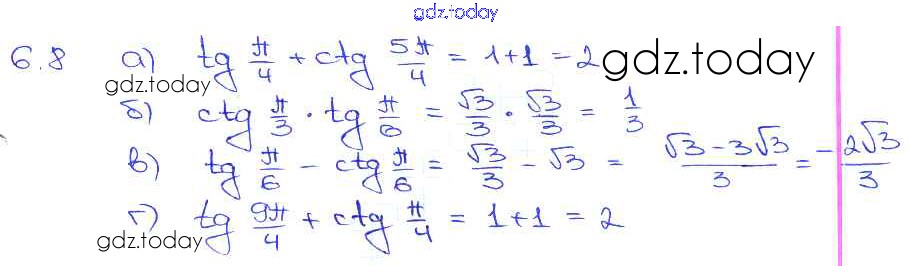 gdz.today
6.8 а) tg π/4 + ctg 5π/4 = 1+1 = 2 gdz.today
gdz.today
б) ctg π/3 · tg π/6 = √3/3 · √3/3 = 1/3
в) tg π/6 − ctg π/6 = √3/3 − √3 = (√3 − 3√3)/3 = −2√3/3
г) tg 9π/4 + ctg π/4 = 1+1 = 2
gdz.today